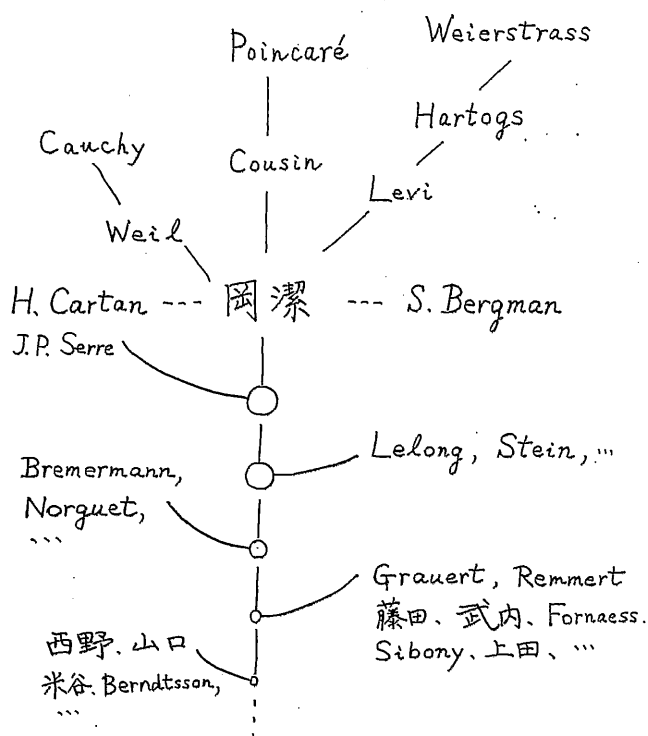 Weierstrass
Poincaré
Hartogs
Cauchy
Cousin
Levi
Weil
H. Cartan --- 岡潔 --- S. Bergman
J.P. Serre
Lelong, Stein, …
Bremermann,
Norguet,
…
Grauert, Remmert
藤田、武内、Fornaess.
Sibony、上田、…
西野、山口
米谷、Berndtsson,
…